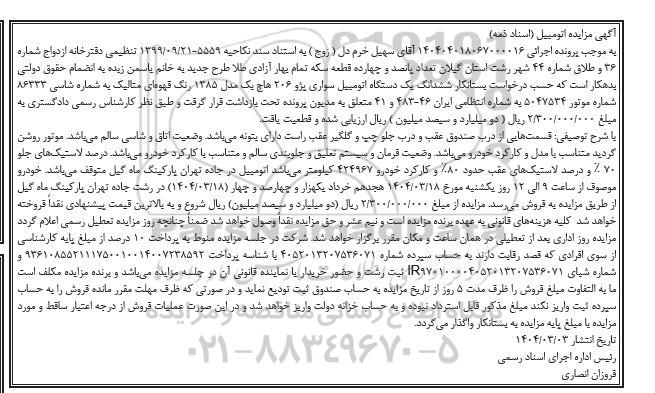 آگهی مزایده اتومبیل (اسناد ذمه)
به موجب پرونده اجرائی ۱۴۰۴۰۴۰۱۸۰۶۷۰۰۰۰۱۶ آقای سهیل خرم دل ( زوج ) به استناد سند نکاحیه ۵۵۵۹-۱۳۹۹/۰۹/۲۱ تنظیمی دفترخانه ازدواج شماره
۳۶ و طلاق شماره ۴۴ شهر رشت استان گیلان تعداد پانصد و چهارده قطعه سکه تمام بهار آزادی طلا طرح جدید به خانم یاسمن زیده به انضمام حقوق دولتی
بدهکار است که حسب درخواست بستانکار ششدانگ یک دستگاه اتومبیل سواری پژو ۲۰۶ هاچ بک مدل ۱۳۸۵ رنگ قهوه‌ای متالیک به شماره شاسی ۸۶۳۳۳
شماره موتور ۵۰۴۷۵۳۴ به شماره انتظامی ایران ۴۶-۴۸۳ و ۴۱ متعلق به مدیون پرونده تحت بازداشت قرار گرفت و طبق نظر کارشناس رسمی دادگستری به
مبلغ ۲/۳۰۰/۰۰۰/۰۰۰ ریال ( دو میلیارد و سیصد میلیون ) ریال ارزیابی شده و قطعیت یافت.
با شرح توصیفی: قسمت‌هایی از درب صندوق عقب و درب جلو چپ و گلگیر عقب راست دارای بتونه می‌باشد. وضعیت اتاق و شاسی سالم می‌باشد. موتور روشن
گردید متناسب با مدل و کارکرد خودرو می‌باشد. وضعیت فرمان و سیستم تعلیق و جلوبندی سالم و متناسب با کارکرد خودرو می‌باشد. درصد لاستیک‌های جلو
۷۰ ٪ و درصد لاستیک‌های عقب حدود ۸۰٪ و کارکرد خودرو ۴۲۴۹۶۷ کیلومتر می‌باشد اتومبیل در جاده تهران پارکینگ ماه گیل متوقف می‌باشد. خودرو
موصوف از ساعت ۹ الی ۱۲ روز یکشنبه مورخ ۱۴۰۴/۰۳/۱۸ هجدهم خرداد یکهزار و چهارصد و چهار (۱۴۰۴/۰۳/۱۸) در رشت جاده تهران پارکینگ ماه گیل
از طریق مزایده به فروش می‌رسد. مزایده از مبلغ ۲/۳۰۰/۰۰۰/۰۰۰ ریال (دو میلیارد و سیصد میلیون) ریال شروع و به بالاترین قیمت پیشنهادی نقداً فروخته
خواهد شد کلیه هزینه‌های قانونی به عهده برنده مزایده است و نیم عشر و حق مزایده نقداً وصول خواهد شد ضمناً چنانچه روز مزایده تعطیل رسمی اعلام گردد
مزایده روز اداری بعد از تعطیلی در همان ساعت و مکان مقرر برگزار خواهد شد. شرکت در جلسه مزایده منوط به پرداخت ۱۰ درصد از مبلغ پایه کارشناسی
از سوی افرادی که قصد رقابت دارند به حساب سپرده شماره ۴۰۵۲۰۱۳۲۰۷۵۳۶۰۷۱ با شناسه پرداخت ۹۳۶۱۰۸۵۵۲۱۱۱۷۵۰۰۱۰۰۱۴۰۰۷۲۳۸۵۹۲ و
شماره شبای IR۹۷۰۱۰۰۰۰۴۰۵۲۰۱۳۲۰۷۵۳۶۰۷۱ ثبت رشت و حضور خریدار یا نماینده قانونی آن در جلسه مزایده می‌باشد و برنده مزایده مکلف است
ما به التفاوت مبلغ فروش را ظرف مدت ۵ روز از تاریخ مزایده به حساب صندوق ثبت تودیع نماید و در صورتی که ظرف مهلت مقرر مانده فروش را به حساب
سپرده ثبت واریز نکند مبلغ مذکور قابل استرداد نبوده و به حساب خزانه دولت واریز خواهد شد و در این صورت عملیات فروش از درجه اعتبار ساقط و مورد
مزایده با مبلغ پایه مزایده به بستانکار واگذار می‌گردد.
تاریخ انتشار ۱۴۰۴/۰۳/۰۳
رئیس اداره اجرای اسناد رسمی
فروزان انصاری
۰۲۱-۸۸۳۴۹۶۷۰-۵